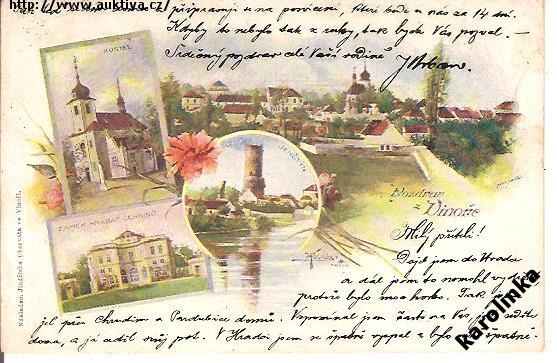 http://www.auktiva.cz/
připravuji se na posvícení, které bude u nás za 14 dní.
Kdyby to nebylo tak z ruky, tak bych Vás pozval. —
Srdečný pozdrav celé Vaší rodině
KOSTEL
JENŠTÝN
ZÁMEK HRABAT ČERNÍNŮ
Pozdrav
z Vinoře
Milý příteli!
Dojel jsem do Hradce
a dál jsem to nemohl vydržet
protože bylo moc horko. Pak
jel přes Chrudim a Pardubice domů. Vzpomínal jsem často na Vás,
doma, a já cítil svůj pot. V Hradci jsem se špatně vyspal a bylo
Nákladem Jindřicha Chorváta ve Vinoři.
karolinka